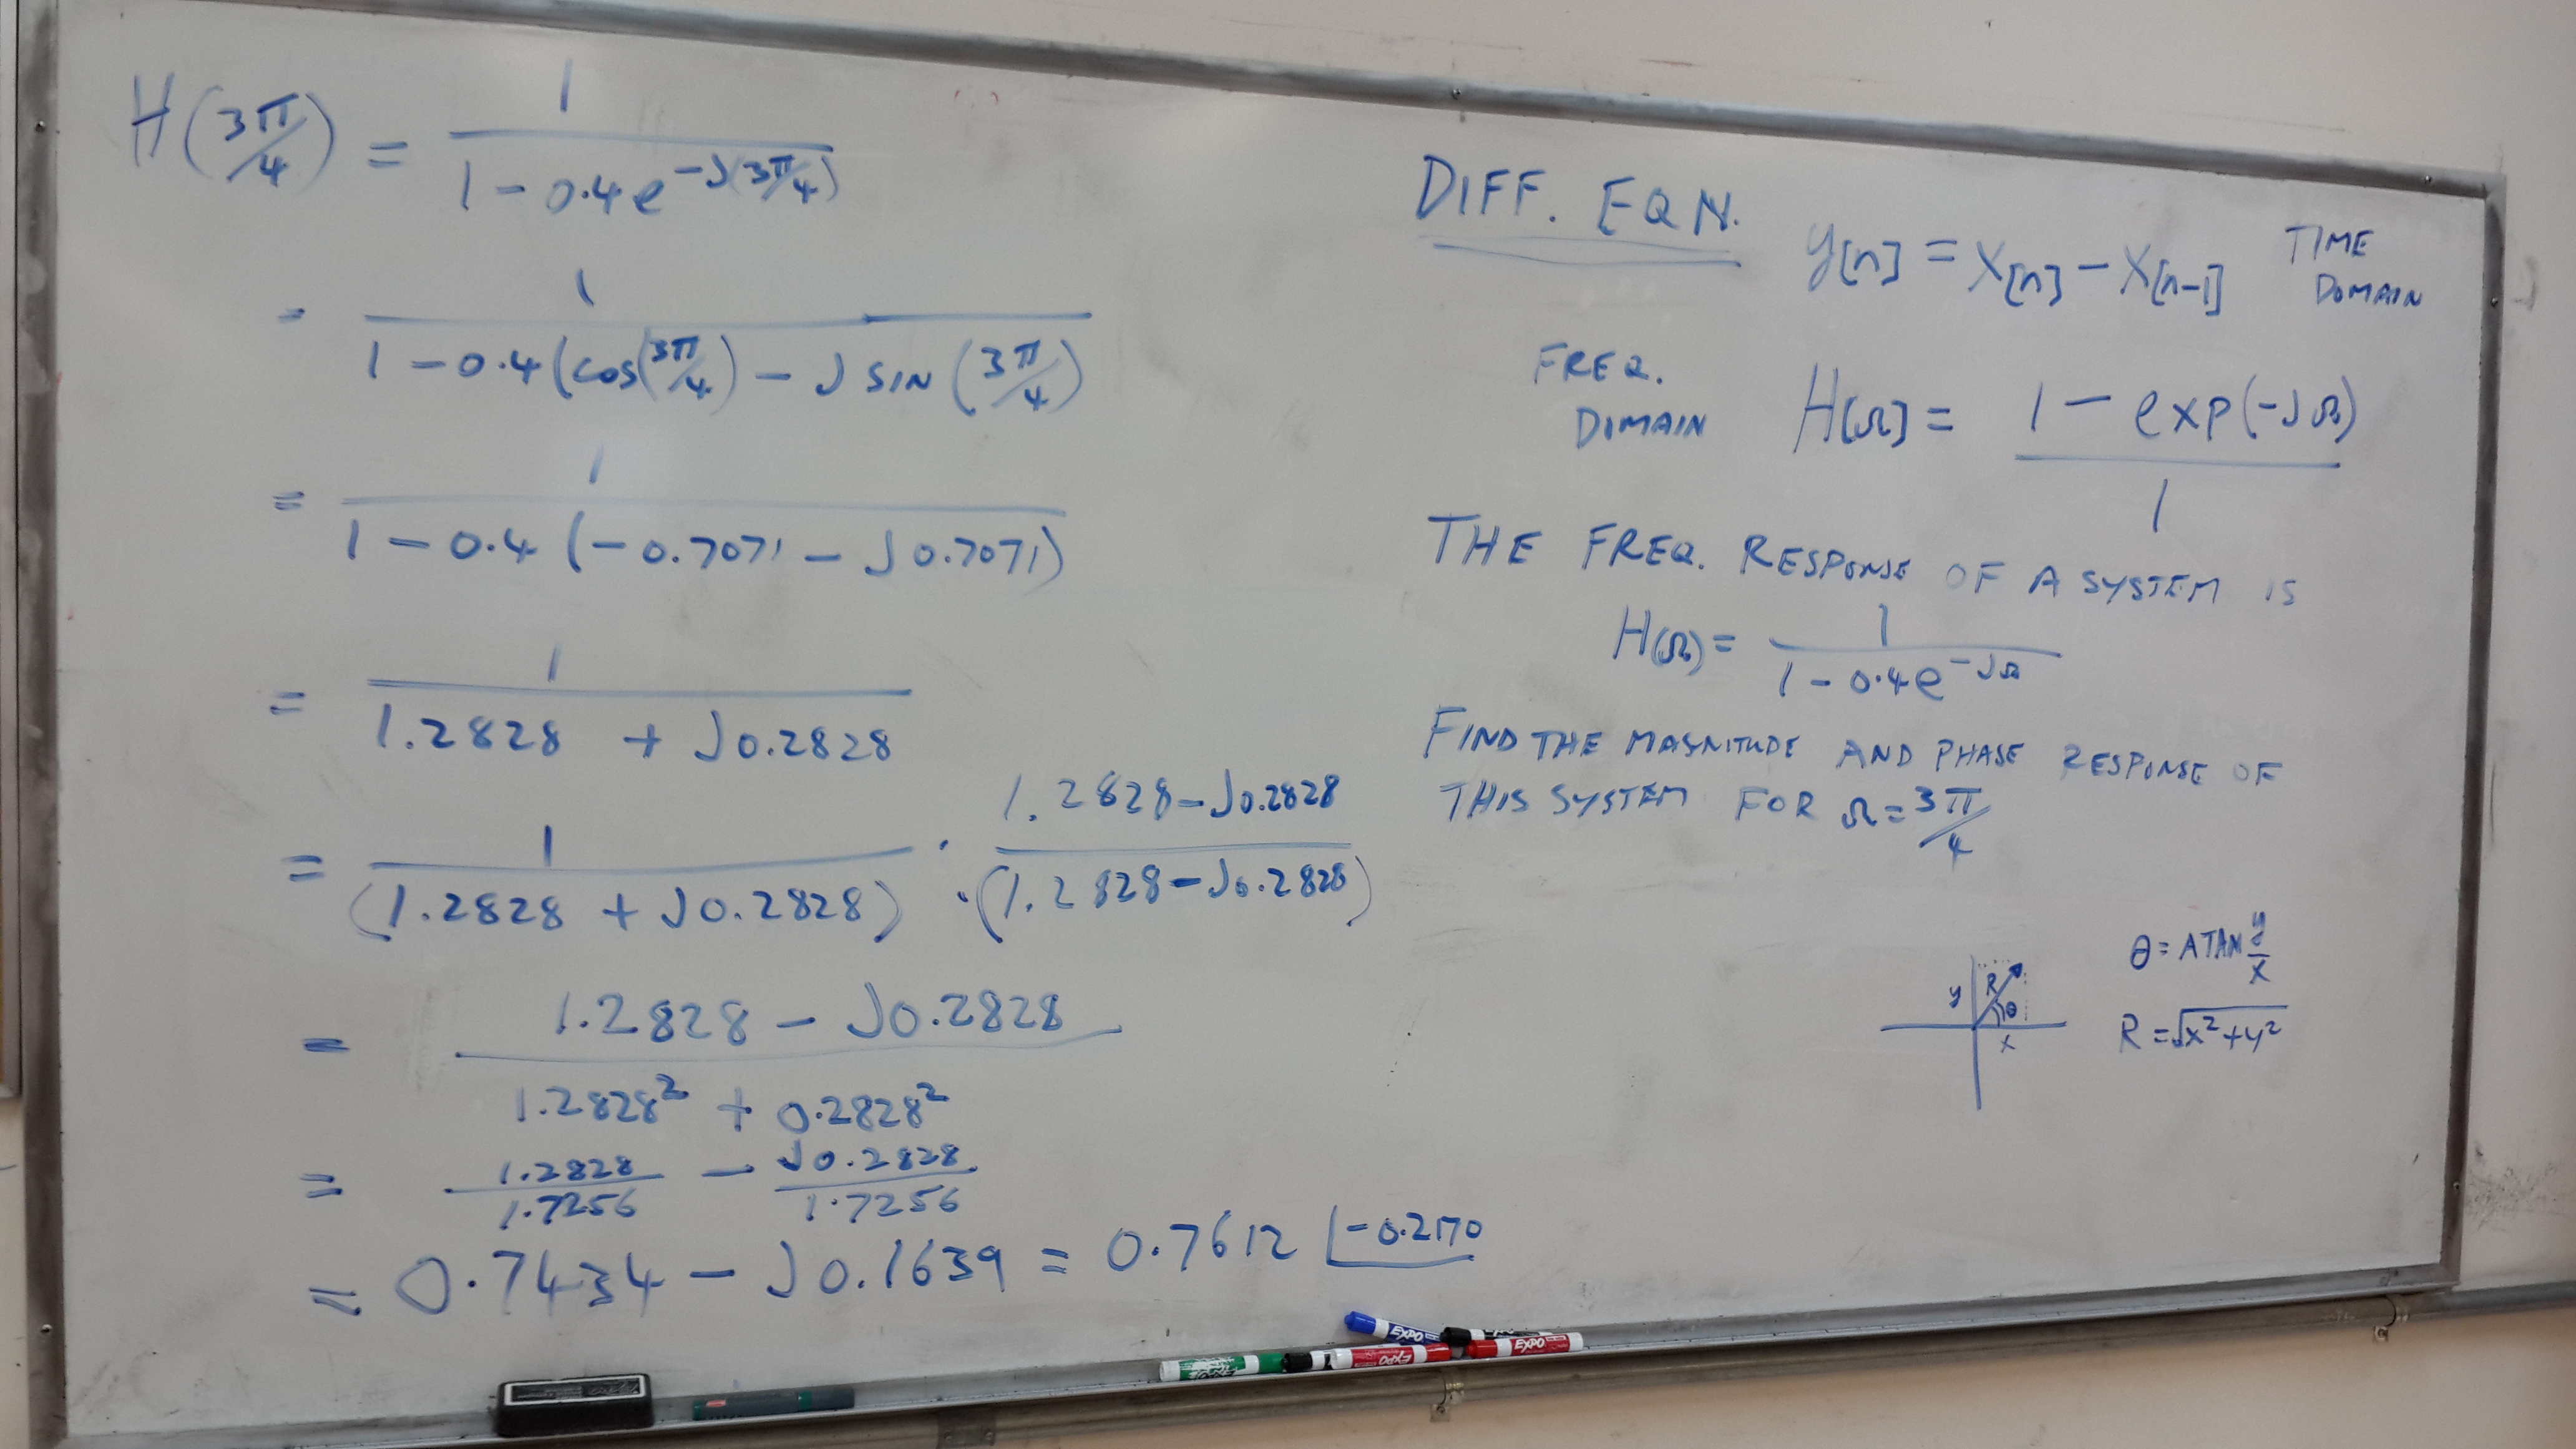 H(3π/4) = 1 / (1 - 0.4e^-J(3π/4))
= 1 / (1 - 0.4(cos(3π/4) - J SIN (3π/4))
= 1 / (1 - 0.4 (-0.7071 - J0.7071))
= 1 / (1.2828 + J0.2828)
= 1 / (1.2828 + J0.2828) · (1.2828 - J0.2828) / (1.2828 - J0.2828)
= (1.2828 - J0.2828) / (1.2828² + 0.2828²)
= 1.2828/1.7256 - J0.2828/1.7256
= 0.7434 - J0.1639 = 0.7612 ∠-0.2170
DIFF. EQN.
y[n] = x[n] - x[n-1]
TIME
DOMAIN
FREQ.
DOMAIN
H[Ω] = (1 - exp(-JΩ)) / 1
THE FREQ. RESPONSE OF A SYSTEM IS
H(Ω) = 1 / (1 - 0.4e^-JΩ)
FIND THE MAGNITUDE AND PHASE RESPONSE OF
THIS SYSTEM FOR Ω = 3π/4
y R θ x
θ = ATAN y/x
R = √(x² + y²)
EXPO
EXPO
EXPO